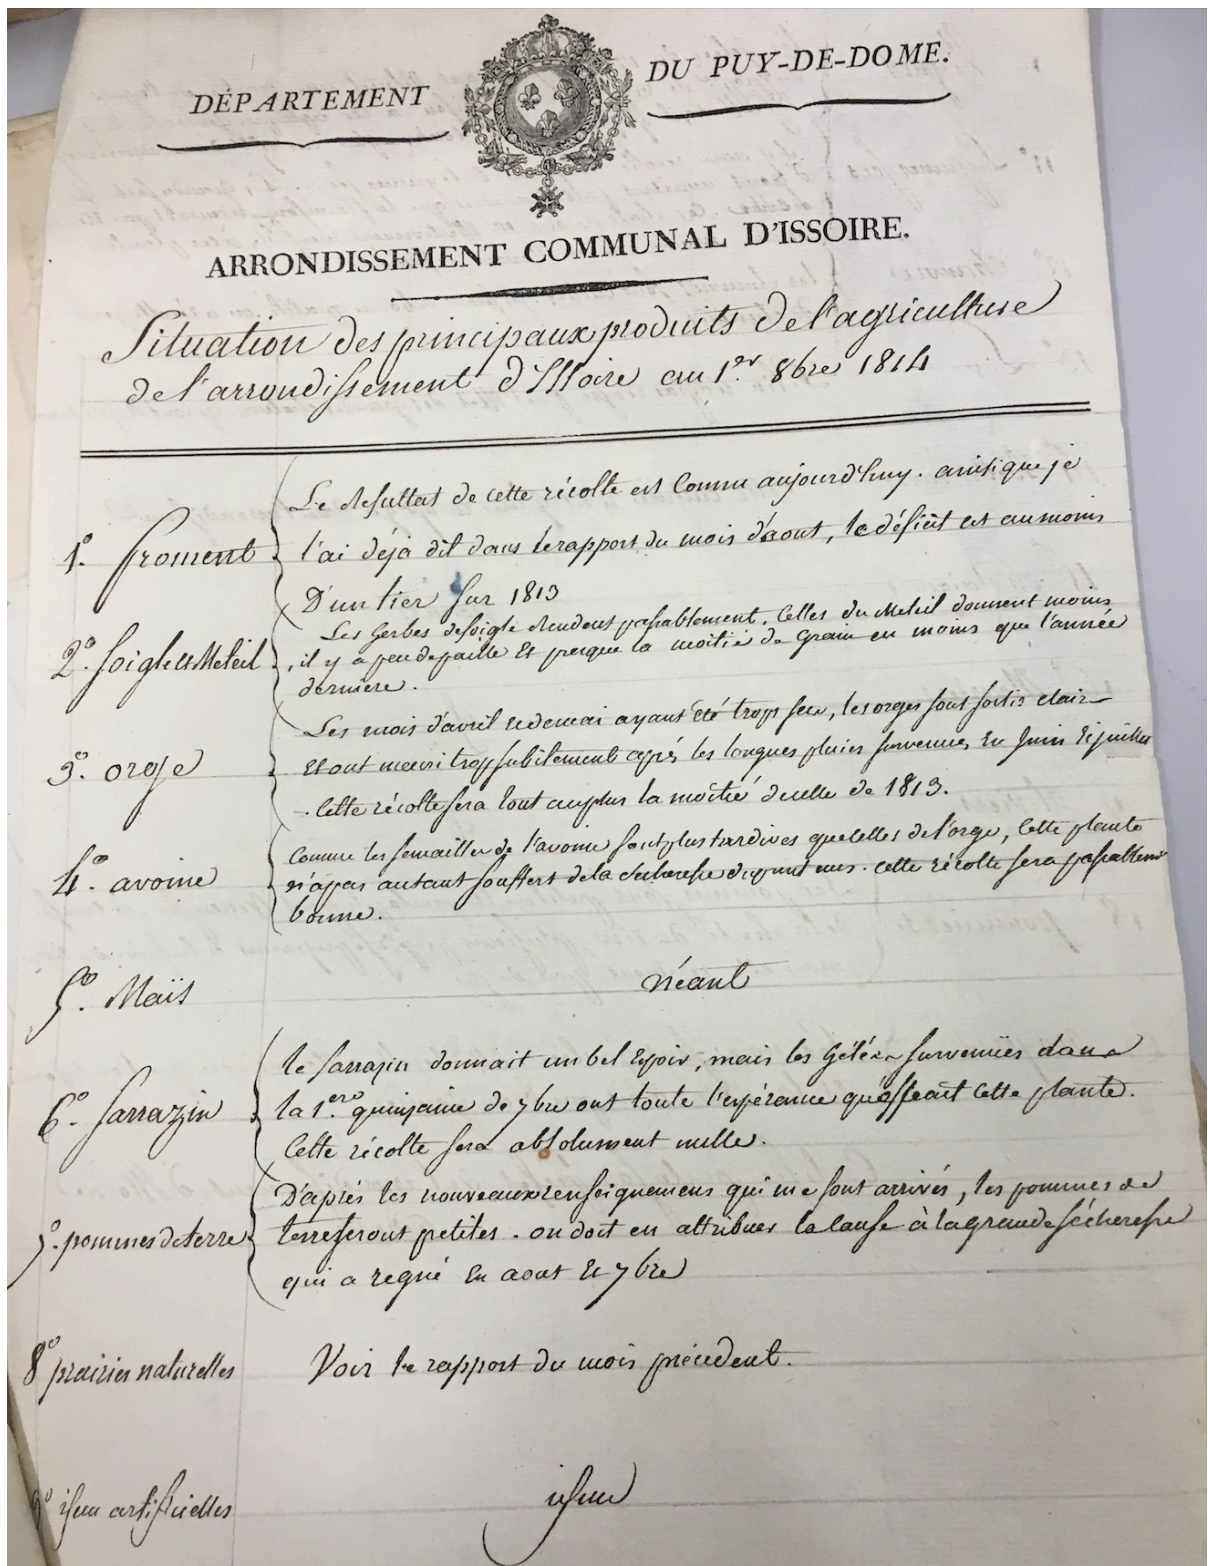 DÉPARTEMENT DU PUY-DE-DOME.
ARRONDISSEMENT COMMUNAL D'ISSOIRE.
Situation des principaux produits de l'agriculture
de l'arrondissement d'Issoire au 1.er 8bre 1814
Le resultat de cette récolte est connu aujourd'huy. ainsi que je
1.° froment l'ai déjà dit dans le rapport du mois d'aout, le déficit est au moins
D'un tier sur 1813
Les Gerbes de soigle rendent passablement. Celles du Meteil donnent moins
2.° soigle et Meteil , il y a peu de paille et presque la moitié de grain en moins que l'année
derniere.
Les mois d'avril et de mai ayant été trop secs, les orges sont sortis clairs
3.° orge et ont meuri trop subitement après les longues pluies survenues en Juin et juillet
. Cette récolte sera tout au plus la moitié de celle de 1813.
Comme les semailles de l'avoine sont plus tardives que celles de l'orge, Cette plante
4.° avoine n'a pas autant souffert de la sécheresse du printems. cette récolte sera passablement
bonne.
5.° Maïs néant
le sarrazin donnait un bel espoir, mais les Gelées survenües dans
6.° sarrazin la 1.ere quinzaine de 7bre ont toute l'espérance qu'offrait Cette plante.
Cette récolte sera absolument nulle.
D'après les nouveaux renseignemens qui me sont arrivés, les pommes de
7.° pommes de terre terre seront petites. on doit en attribuer la cause à la grande sécheresse
qui a regné en aout et 7bre
8° prairies naturelles Voir le rapport du mois précédent.
9° idem artificielles idem